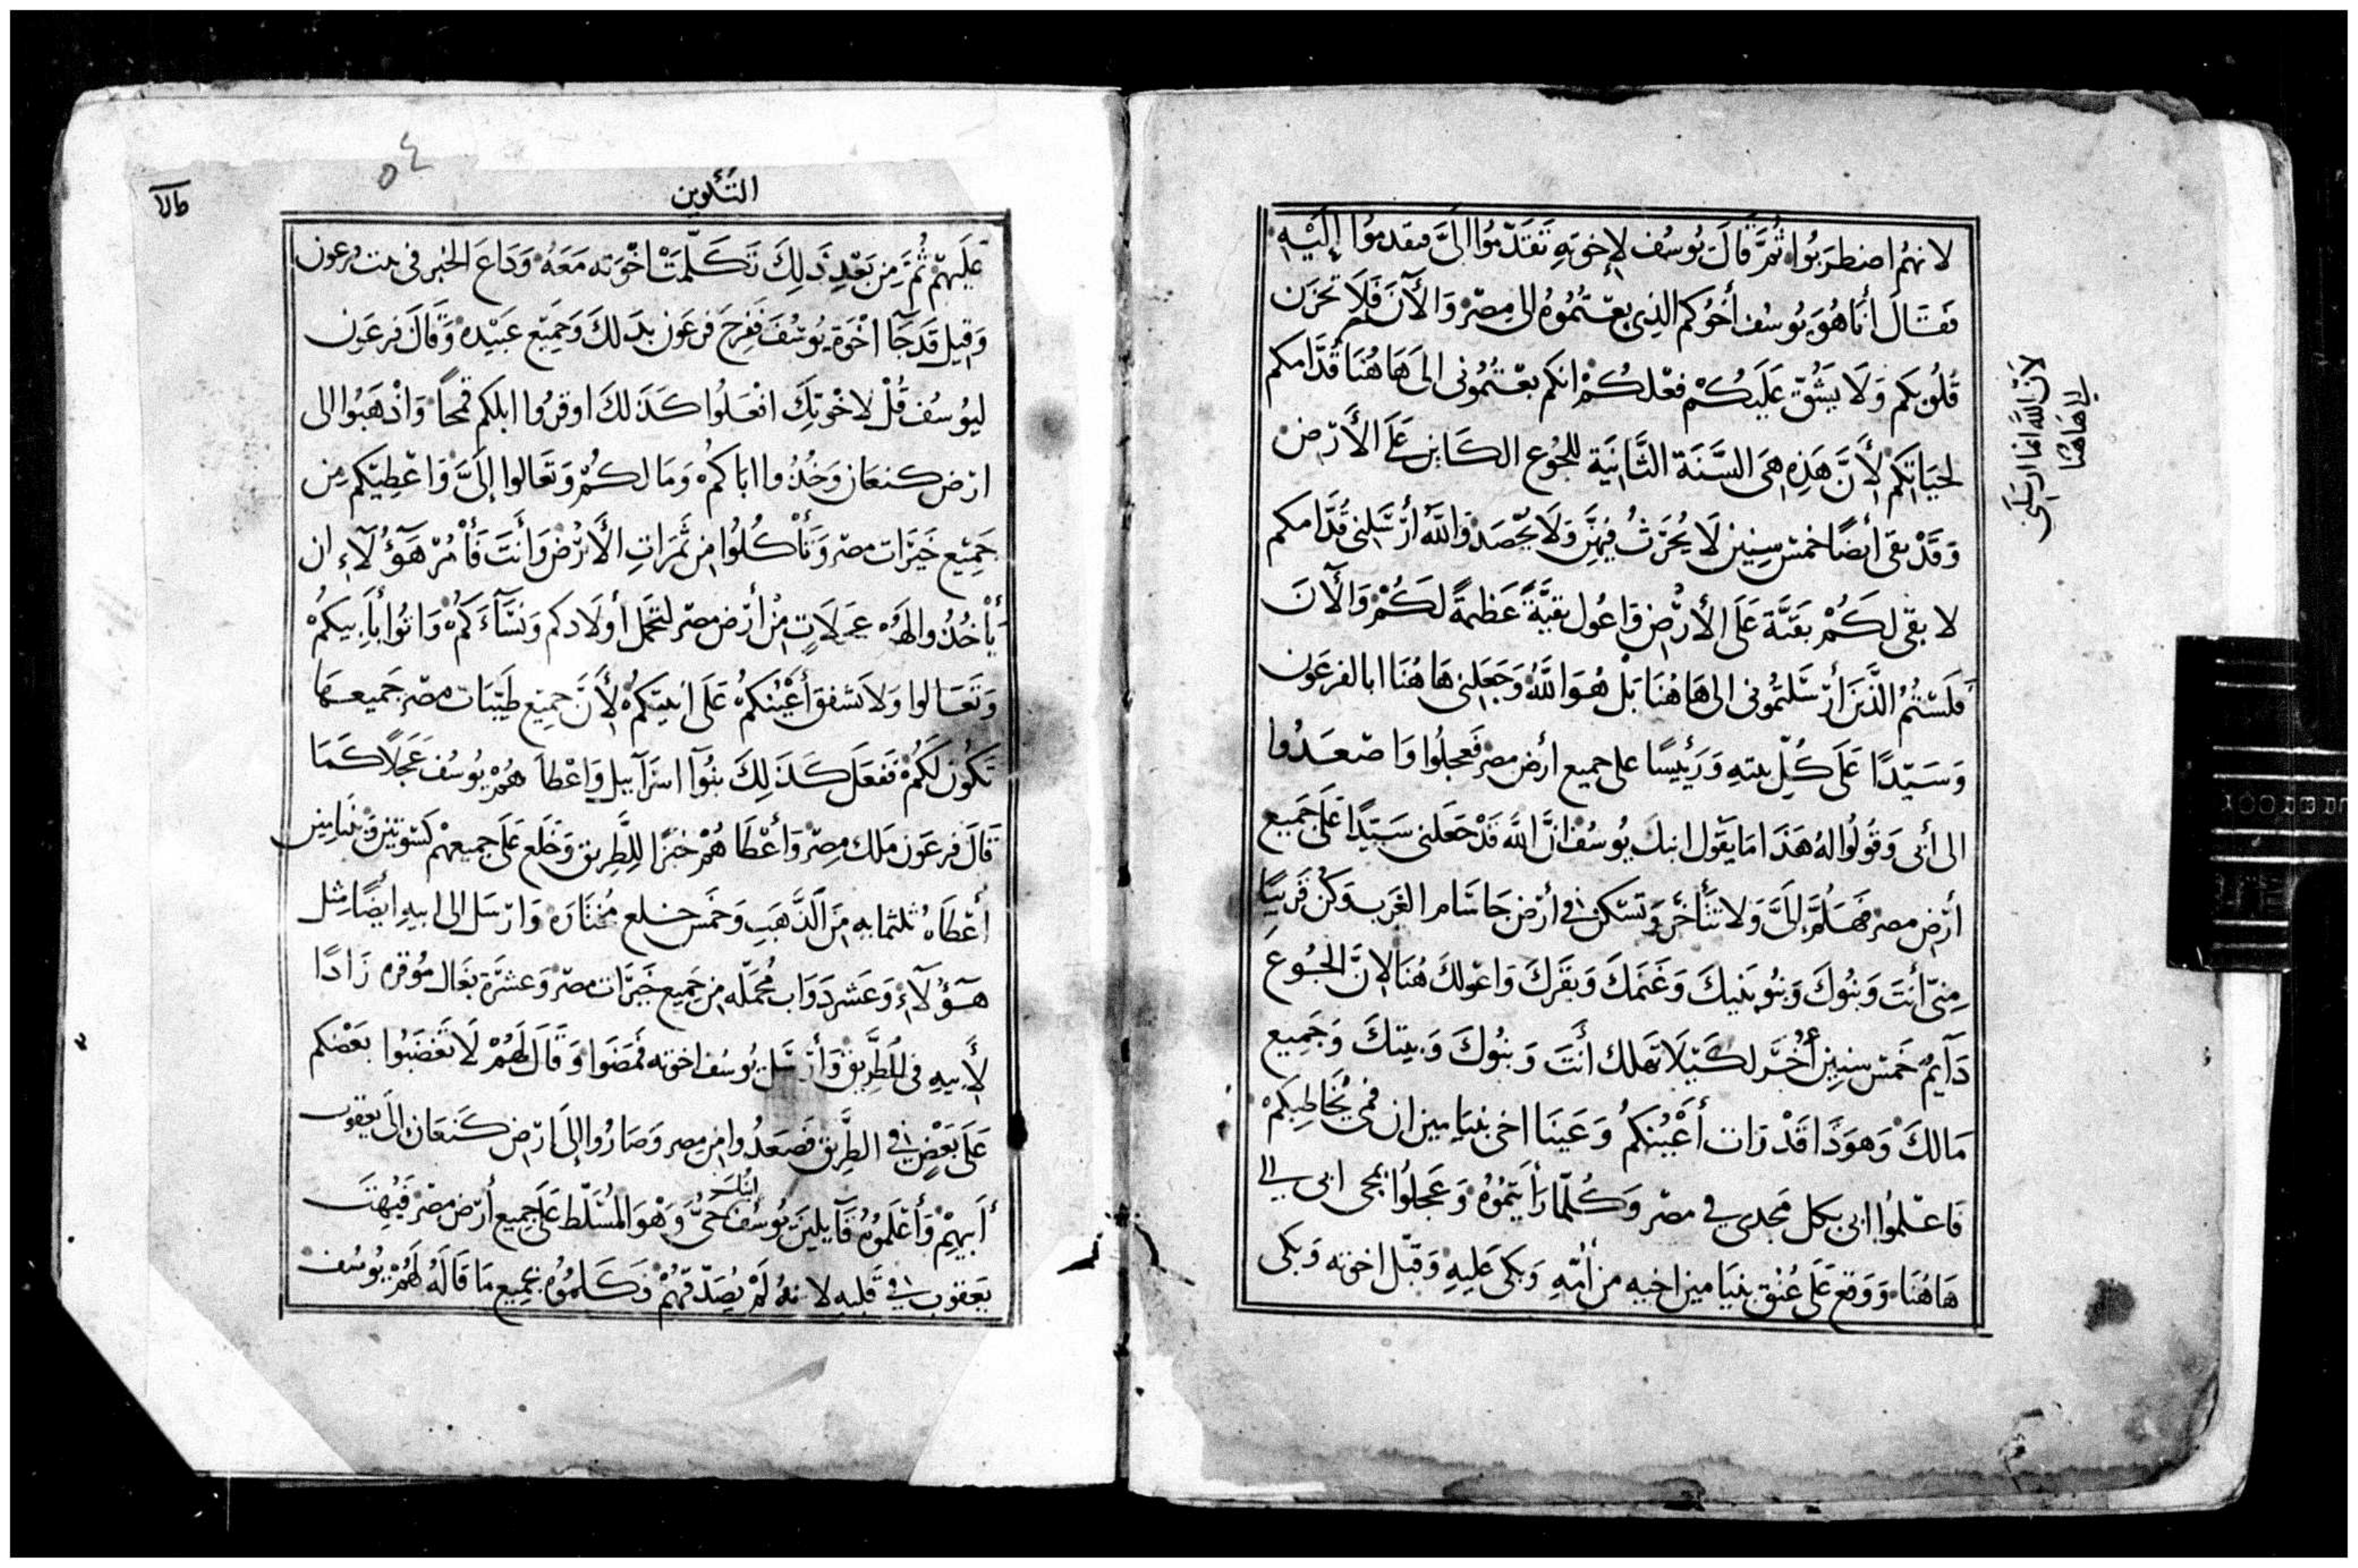 لانهُم اضطرَبُوا ثُمَّ قَالَ يُوسُف لإخوَتِهِ تَقَدَّمُوا الَىَّ فتقدمُوا إِلَيْهِ
فَقَالَ أنَا هُوَ يُوسُف أخُوكم الذِى بعْتُمُوهُ الى مِصْر وَالآنَ فَلَا تحزَن
قُلُوبكم وَلَا يَشُقّ عَلَيكُمْ فعْلكُمْ انكم بعْتُمُونى الىَ هَاهُنَا قُدَّامكم
لحيَاتِكم لأَنَّ هَذِهِ هِىَ السَّنَة الثَّانِيَة للجُوع الكَاين عَلَى الأَرْض
وَقَدْ بقى أيضًا خمسْ سِنِين لَا يُحَرَثُ فِيهِنَّ وَلَا يحْصَد وَاللَّه أَرْسَلنى قُدَّامكم
لا بقى لَكُمْ بَقيَّة عَلَى الأَرْض وَاعُول بقيَّةً عَظيمَةً لَكُمْ وَالآنَ
فَلَسْتُمُ الَّذينَ أرْسَلتمُونى الى هَاهُنَا بَلْ هُوَ اللَّهُ وَجَعَلنى هَاهُنَا ابا لفرعَون
وَسَيّدًا عَلَى كُلِّ بيتهِ وَرَئِيسًا على جميع أرْض مصر فَعجلُوا وَاصْعَدُوا
الى أبى وَقُولُوا لهُ هَذَا مَا يَقُول ابنكَ يُوسُف انَّ اللَّه قَدْ جَعَلنى سَيّدًا عَلَى جَميع
أرْض مصر فَهَلُمَّ إلىَّ وَلا تتَأَخَّر وَتَسْكن فى أرْض جَاسَام الغَرب وَكُن قَريبًا
مِنىّ أنتَ وَبنُوكَ وَبنُو بَنيكَ وَغَنَمكَ وَبقَركَ وَاعُولكَ هُنَا لانَّ الجُوعَ
دَآيمٌ خَمسْ سنِين أُخَرَ لكَيْلَا تَهلك أَنتَ وَبنُوكَ وَبيتكَ وَجَمِيع
مَالكَ وَهوَذَا قَدْ رَات أَعْيُنكمُ وَعَينَا اخى بنيَامِين ان فمى يُخَاطِبكمْ
فَاعْلمُوا ابى بكل مَجدى في مصْر وَكُلّمَا رَأيتُمُوُه وَعَجلُوُا بمجى ابى الى
هَاهُنَا وَوَقعَ عَلَى عُنْق بنيَامين اخيه من أُمّهِ وَبكى عَليهِ وَقبّل اخوته وَبكى
لأنّ اللَّه انما ارْسَلَنى
الى هَاهُنَا
٥٤
التَّكْوين
عَلَيهِمْ ثُمَّ مِن بَعْدِ ذَلِكَ تَكَلَّمَتْ اخْوَته مَعَهُ وَذَاعَ الخُبر فى بيت فرعون
وَقيل قَد جَآ اخْوَة يُوسُفَ فَفرِحَ فرعَون بذَلكَ وَجَمِيع عَبيْدهِ وَقَالَ فرعَون
ليُوسُف قُلْ لاخْوَتِكَ افعَلُوا كَذَلكَ اوقرُوا ابلكم قمْحًا وَاذْهَبُوا الى
ارْض كنعَان وَخُذُوا اباكمْ وَمَا لكُمْ وَتَعَالوا إلَىَّ وَاعْطِيكم مِن
جَميْع خَيرَات مصْر وَتَأكُلُوُا مِن ثَمَرَاتِ الأَرْض وَأَنتَ فَأْمُرْ هَؤُلآءِ ان
يَأْخُذُوا لهُم عَجَلَاتٍ مِنْ أرْض مصْر لتحْمل أولَادكم وَنسَآءَكُمْ وَاتُوا بأَبِيكُمْ
وَتعَالوا وَلاَ تشفق أَعْيُنكمُ عَلَى انيتكمُ لأَنَّ جميع طَيّبَات مصْر جَميعهَا
تَكُون لَكُمْ فَفَعَلَ كَذَلِكَ بنُوآ اسرَآييل وَاعْطَاهُمْ يُوسُف عَجَلًا كَمَا
قَالَ فرعَون مَلك مِصْر وَأَعْطَاهُمْ خبزًا للِطَّرِيق وَخَلَع عَلَى جميعهمْ كسْوَتين وَبنيامين
أعْطَاهُ ثلثمايه مِنَ الذَّهَبِ وَخَمس خلع مُختَارَه وَارْسَل الى ابيهِ أيضًا مِثل
هَؤُلَآءِ وَعَشر دَوَاب مُحَمَّله مِن جَمِيع خَيرَات مصْر وَعشرَة بغَال مُوقره زَادًا
لأَبِيهِ فى الطَّرِيق وَأَرْسَل يُوسُف اخوته فمَضَوا وَقَالَ لهُمْ لَا تَغضَبُوا بَعْضكم
عَلَى بَعْضٍ فى الطَّرِيق فَصعَدُوا مِن مصر وَصَارُوا إلَى ارْض كَنَعَان الَى يعقوب
أَبِيهِمْ وَأَعْلَمُوُه قَآيلينَ ابنكَ يُوسُف حَىُّ وَهْوَ المُسَلّط عَلَى جَمِيع أرْض مصْر فَبُهِتَ
يَعقوب فى قَلبه لا نهُ لَمْ يُصَدّقهُمْ وَكَلمُوُه بجَمِيع مَا قَالَهُ لَهُمْ يُوسُف